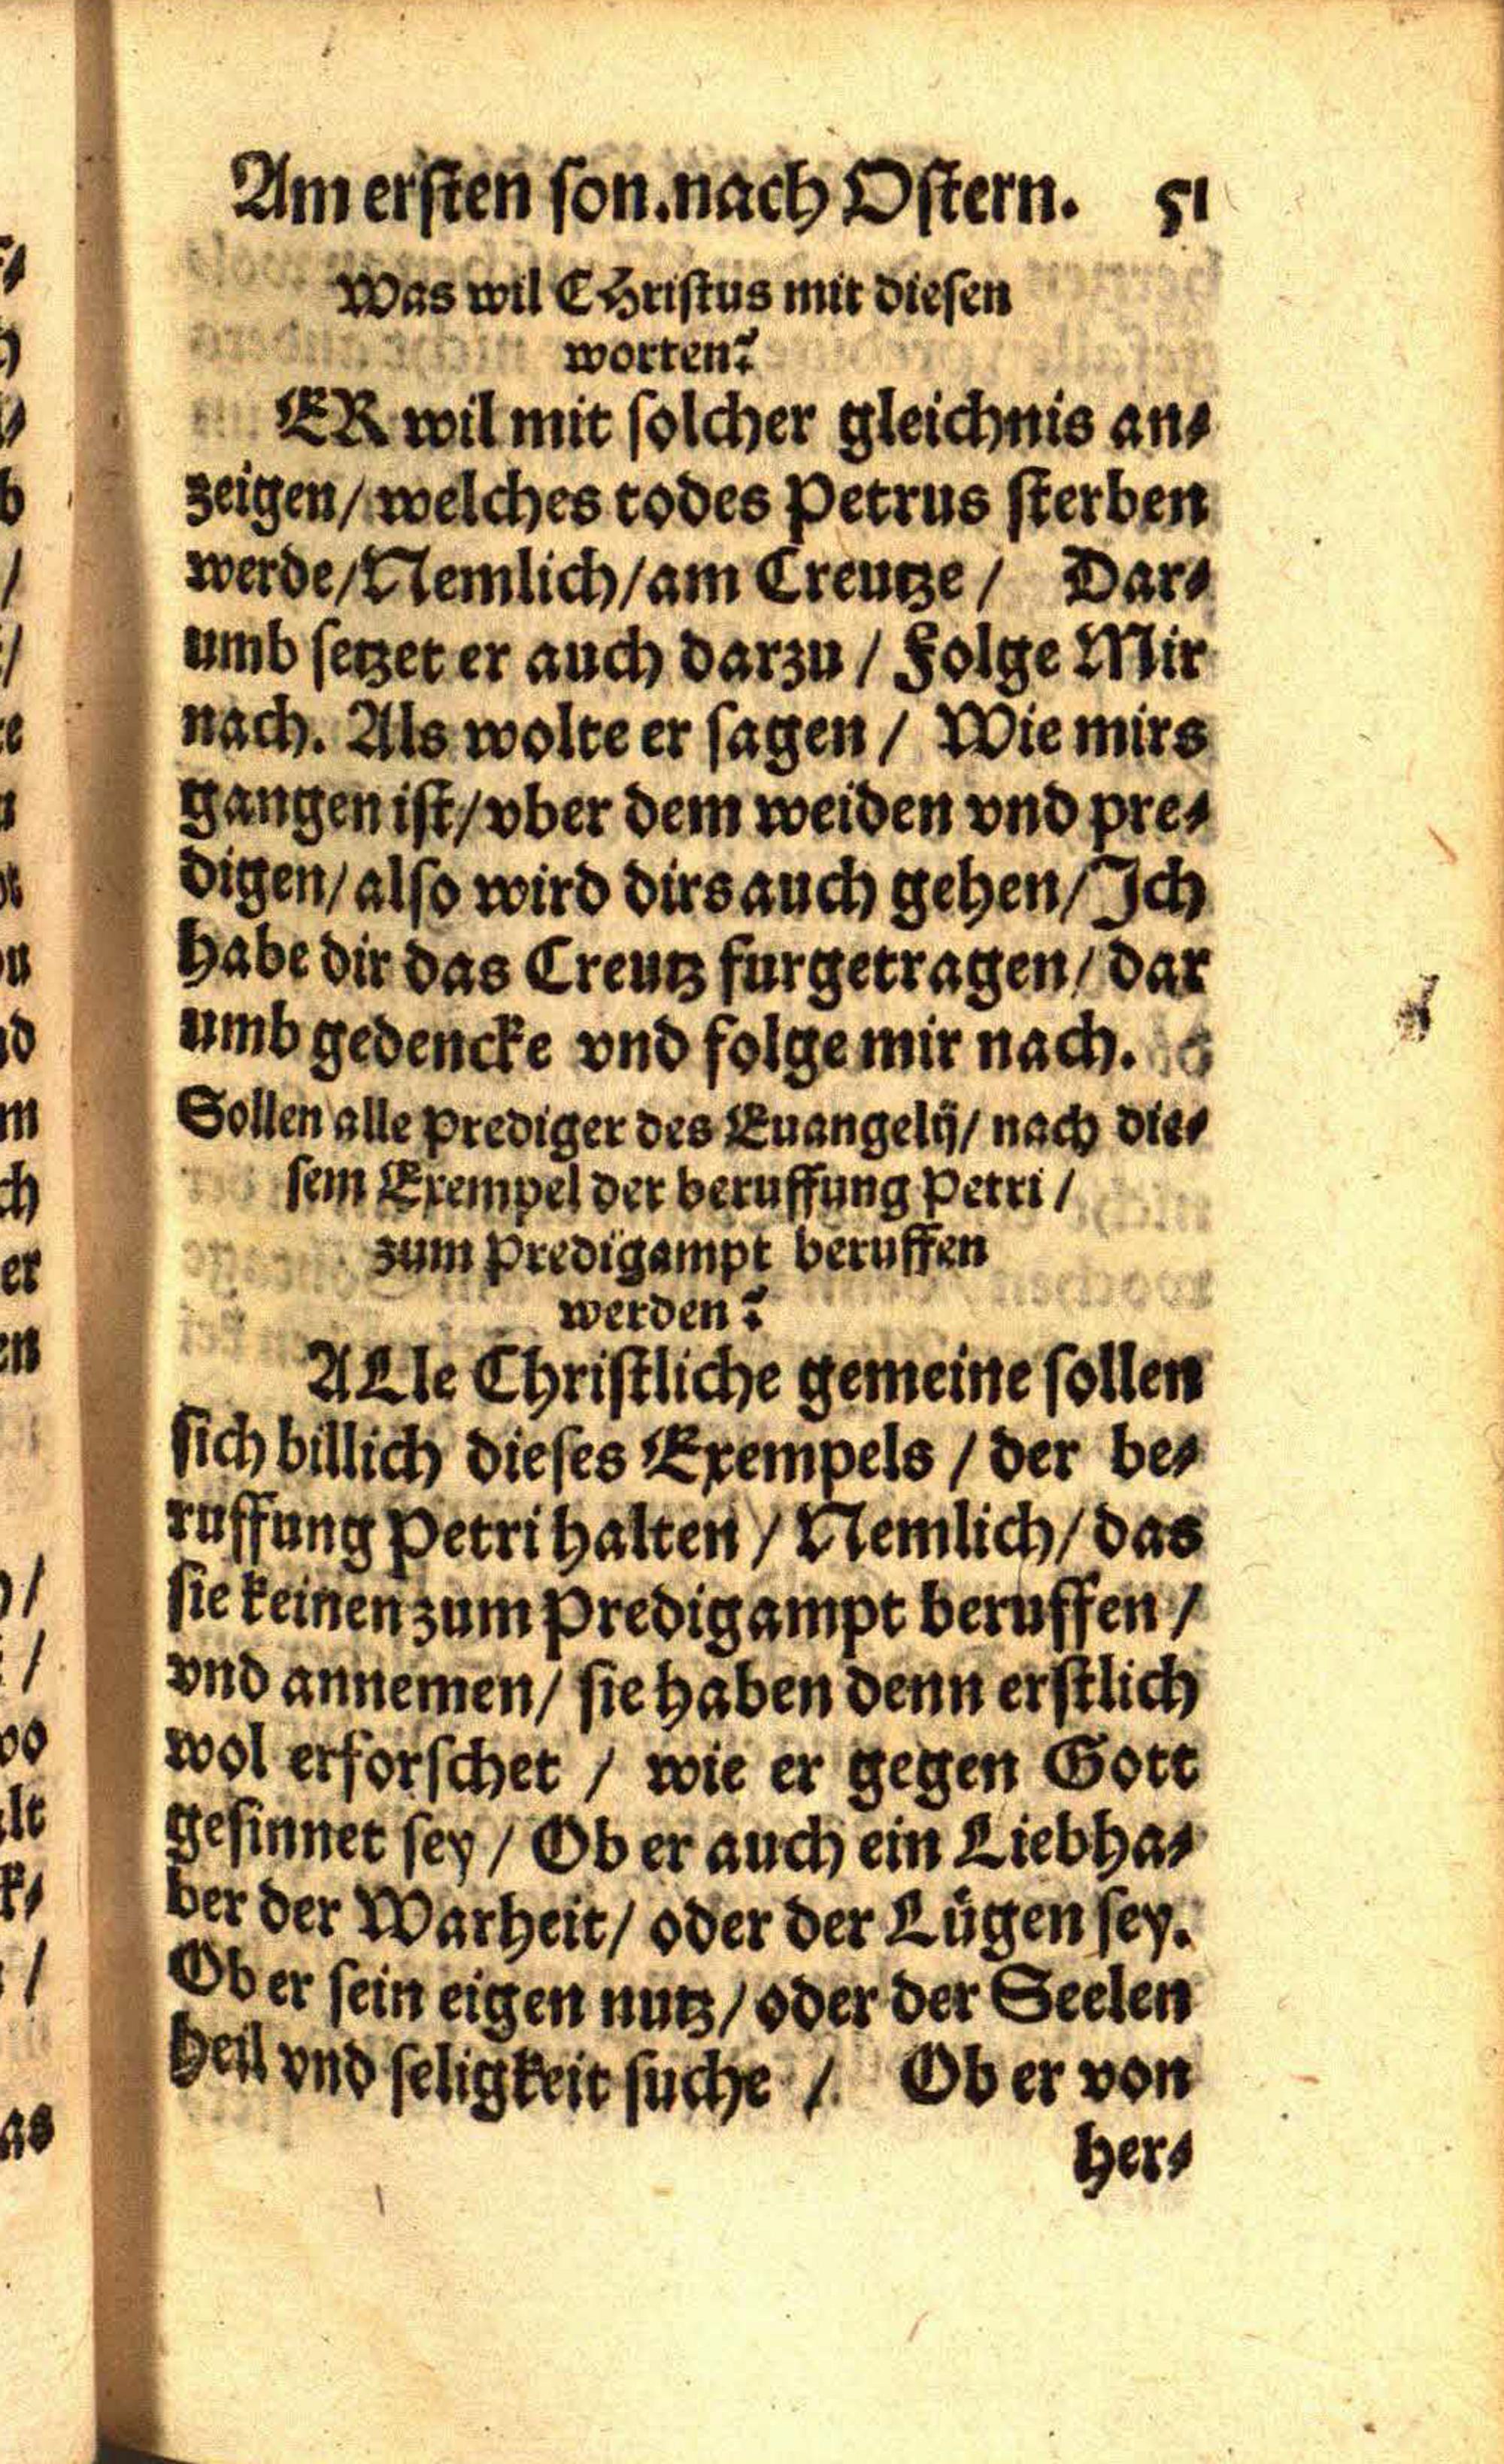 Am ersten son. nach Ostern. 51
Was wil CHristus mit diesen
worten?
ER wil mit solcher gleichnis an⸗
zeigen / welches todes Petrus sterben
werde / Nemlich / am Creutze / Dar⸗
umb setzet er auch darzu / Folge Mir
nach. Als wolte er sagen / Wie mirs
gangen ist / vber dem weiden vnd pre⸗
digen / also wird dirs auch gehen / Ich
habe dir das Creutz furgetragen / dar
umb gedencke vnd folge mir nach.
Sollen alle Prediger des Euangelij / nach die⸗
sem Exempel der beruffung Petri /
zum Predigampt beruffen
werden?
ALle Christliche gemeine sollen
sich billich dieses Exempels / der be⸗
ruffung Petri halten / Nemlich / das
sie keinen zum Predigampt beruffen /
vnd annemen / sie haben denn erstlich
wol erforschet / wie er gegen Gott
gesinnet sey / Ob er auch ein Liebha⸗
ber der Warheit / oder der Lügen sey.
Ob er sein eigen nutz / oder der Seelen
heil vnd seligkeit suche / Ob er von
her⸗